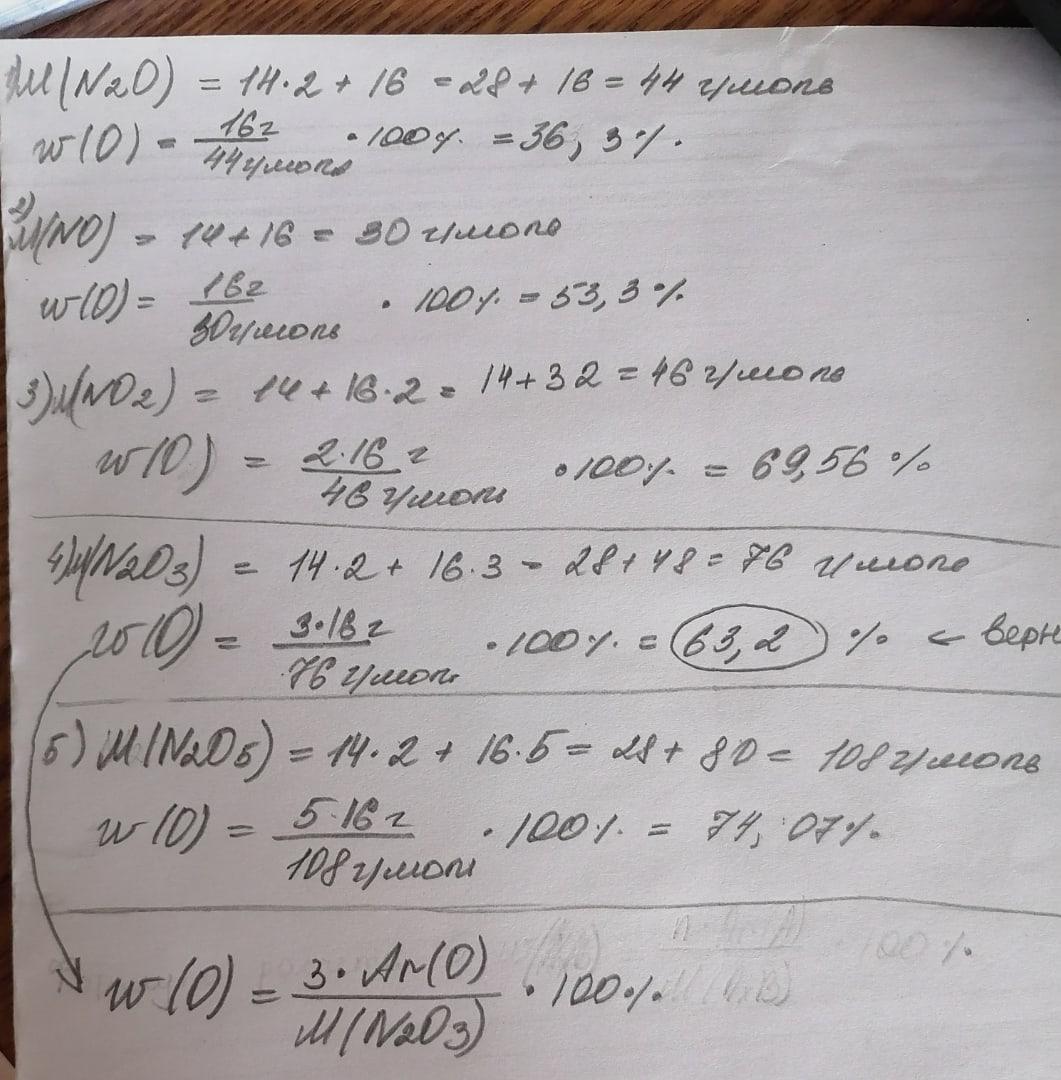 1) M(N2O) = 14·2 + 16 = 28 + 16 = 44 г/моль
w(O) = 16г / 44г/моль · 100% = 36,3%.
2) M(NO) = 14 + 16 = 30 г/моль
w(O) = 16г / 30г/моль · 100% = 53,3%
3) M(NO2) = 14 + 16·2 = 14 + 32 = 46 г/моль
w(O) = 2·16 г / 46 г/моль · 100% = 69,56%
4) M(N2O3) = 14·2 + 16·3 = 28 + 48 = 76 г/моль
w(O) = 3·16 г / 76 г/моль · 100% = 63,2 % ← верн
5) M(N2O5) = 14·2 + 16·5 = 28 + 80 = 108 г/моль
w(O) = 5·16 г / 108 г/моль · 100% = 74,07%
w(O) = 3·Ar(O) / M(N2O3) · 100%